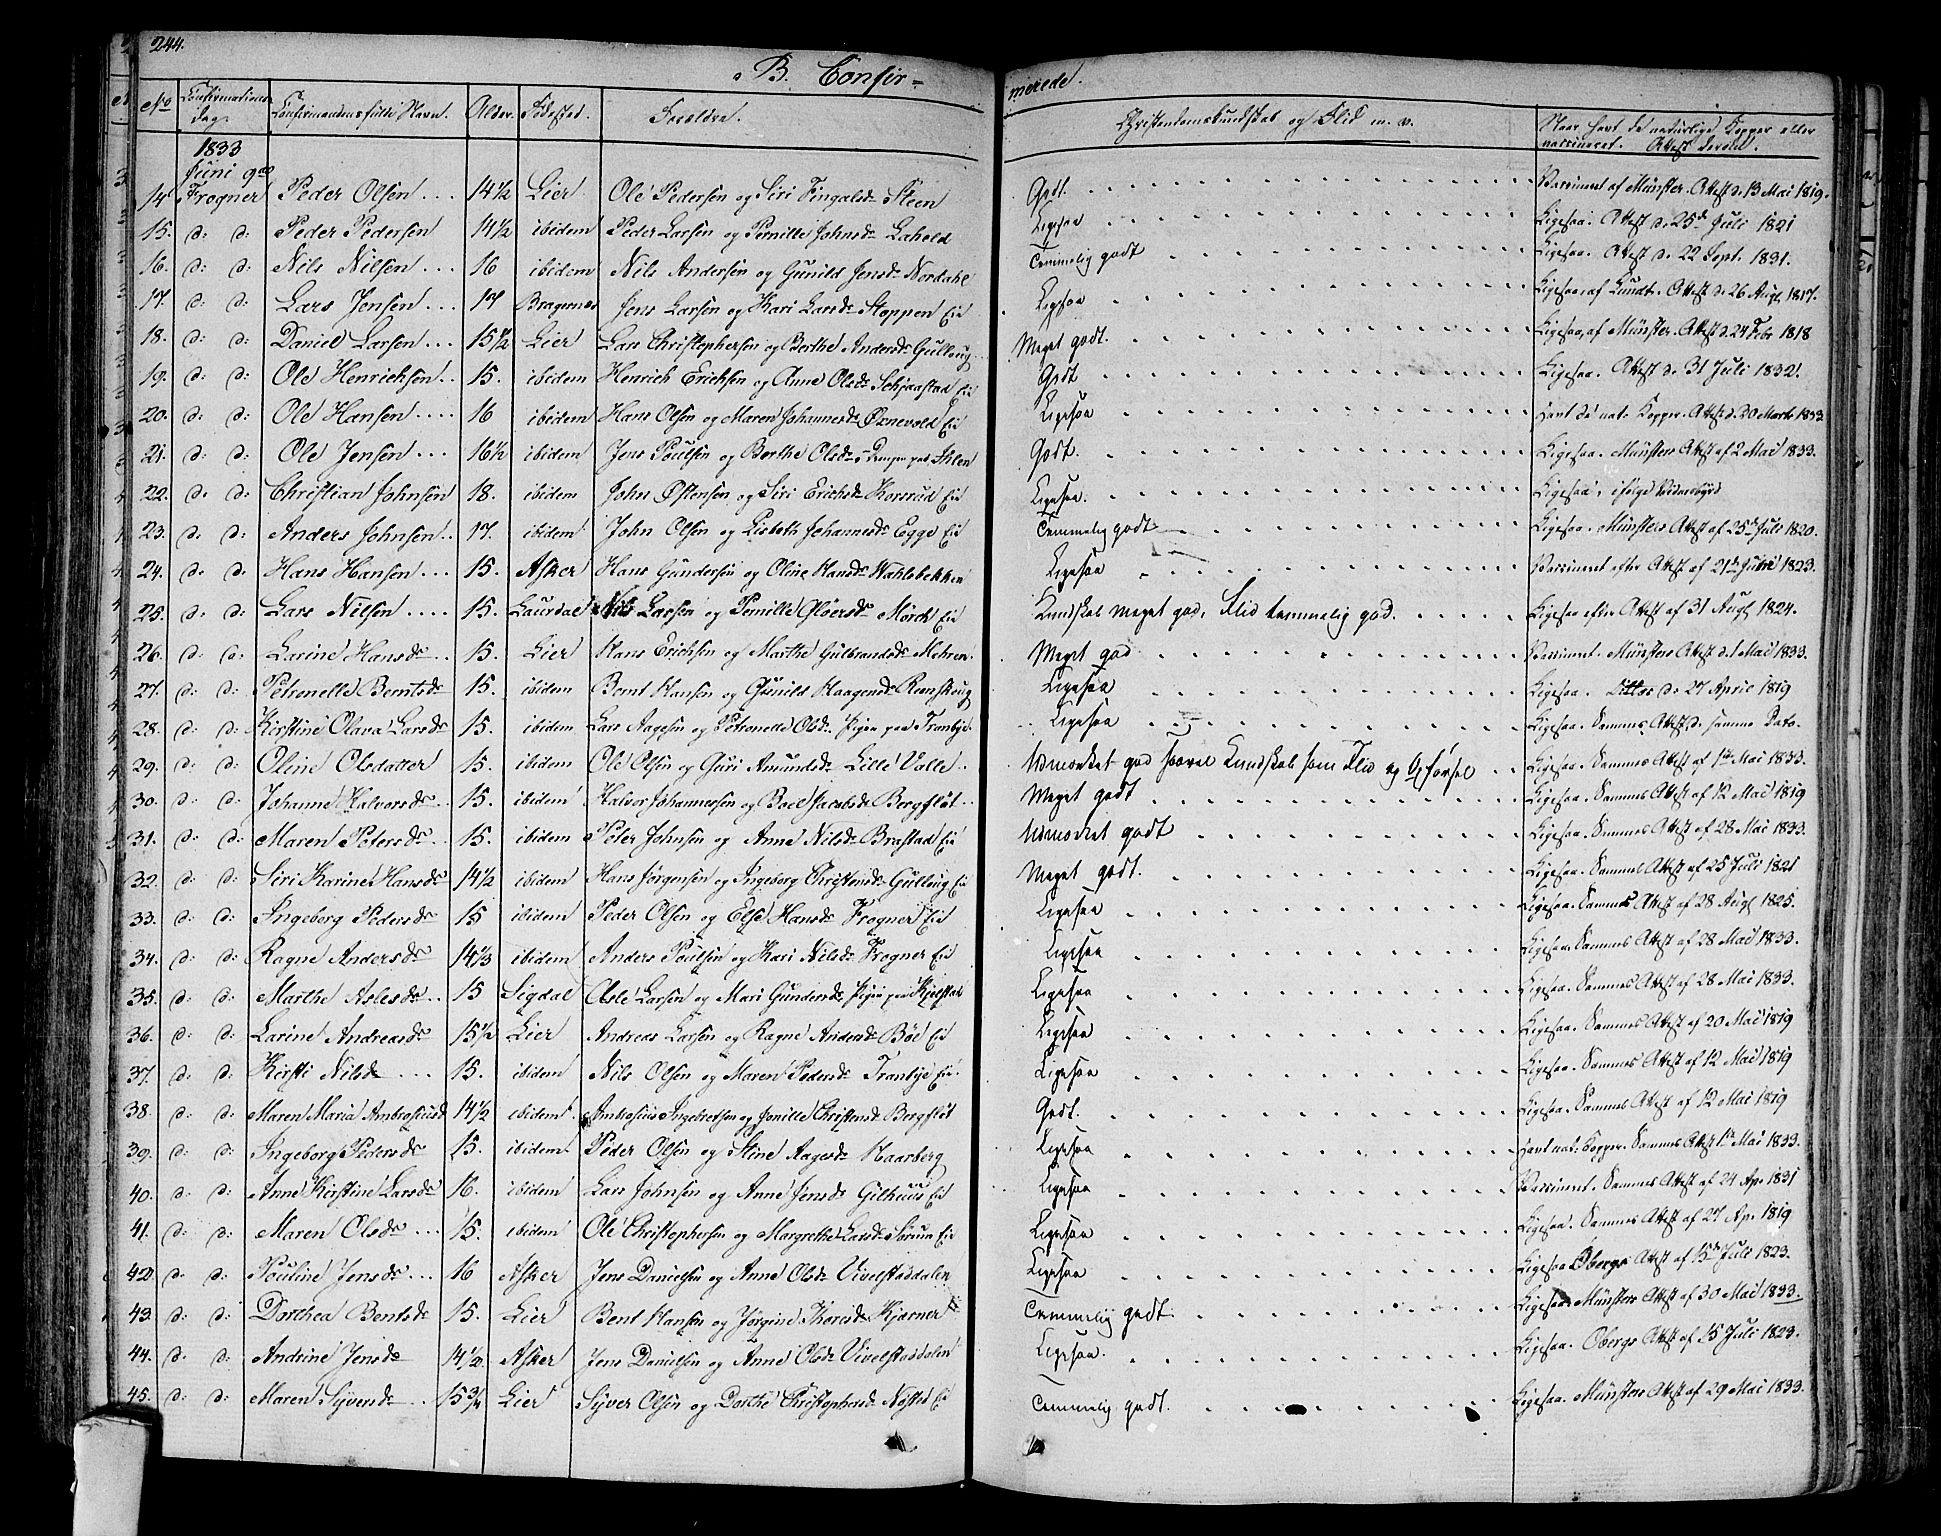 244.
B. Confir-
merede.
No Confirmations dag. Confirmandens fulde Navn. Alder. Fødested. Forældre. Christendomskundskab og Flid m. v. Naar havt de naturlige Kopper eller vaccineret. Attest derom.
1833
Juni 9de
14 Frogner Peder Olsen 14½ Lier Ole Pedersen og Siri Fingalsd. Steen Godt. Vaccineret af Münster. Attest d. 13 Mai 1819.
15. d: d: Peder Pedersen 14½ ibidem Peder Larsen og Pernille Johnsd. Ligesaa Ligesaa. Attest d. 25de Juli 1821
16. d: d: Nils Nilsen 16 ibidem Nils Andersen og Gunild Jensd. Nordahl Temmelig godt Ligesaa. Attest d. 22 Sept. 1831.
17. d: d: Lars Jensen 17 Bragernes Jens Larsen og Kari Larsd. Stoppen Eie Ligesaa Ligesaa, af Lundt. Attest d. 26 Aug. 1817.
18. d: d: Daniel Larsen 15½ Lier Lars Christophersen og Berthe Andersd. Gulloug Meget godt. Ligesaa, af Münster. Attest d. 24 Febr 1818
19. d: d: Ole Henrichsen 15. ibidem Henrich Erichsen og Anne Olsd. Eie Godt Ligesaa. Attest d. 31 Juli 1832.
20. d: d: Ole Hansen 16 ibidem Hans Olsen og Maren Johannesd. Eie Ligesaa Havt de nat. Kopper. Attest d. 20 Marts 1833
21. d: d: Ole Jensen 16½ ibidem Jens Poulsen og Berthe Olsd. Ihlen Godt. Ligesaa. Münsters Attest af 2 Mai 1833.
22. d. d: Christian Johnsen 18. ibidem John Østensen og Siri Erichsd. Korsrud Eie Ligesaa. Ligesaa, ifølge
23. d: d: Anders Johnsen 17. ibidem John Olsen og Lisbeth Johannesd. Egge Eie Temmelig godt Ligesaa. Münsters Attest af 25de Juli 1820.
24. d: d: Hans Hansen 15. Asker Hans Gundersen og Oline Hansd. Ligesaa Vaccineret efter Attest af 21de Juni 1823.
25. d: d: Lars Nilsen 15. Laurdal Nils Larsen og Pernille Mörch Eie Kundskab meget god, Flid temmelig god. Ligesaa efter Attest af 31 Aug. 1824.
26. d: d: Larine Hansd. 15. Lier Hans Erichsen og Marthe Gulbrandsd. Mehren. Meget god Vaccineret. Münsters Attest d. 1 Mai 1833.
27. d: d: Petronelle Berntsd. 15. ibidem Bernt Hansen og Gunild Haagensd. Renskoug Ligesaa Ligesaa. Dittos d. 27 April 1819
28. d: d: Kirstine Olava Larsd. 15. ibidem Lars Aagesen og Petronelle Olsd. Pigen paa Tranbye Ligesaa Ligesaa. Sammes Attest d. samme Dato.
29. d: d: Oline Olsdatter 15. ibidem Ole Olsen og Guri Amundsd. Lille Valle Udmærket god saavel Kundskab som Flid og Opførsel Ligesaa. Sammes Attest af 1ste Mai 1833.
30. d: d: Johanne Halvorsd. 15. ibidem Halvor Johannersen og Jacobsd. Bergflöt Meget godt Ligesaa. Sammes Attest af 12 Mai 1819
31. d: d: Maren Petersd. 15. ibidem Peter Johnsen og Anne Nilsd. Brastad Eie Udmærket godt Ligesaa. Sammes Attest af 28 Mai 1833.
32. d: d: Siri Karine Hansd. 14½ ibidem Hans Jørgensen og Ingeborg Christensd. Gulloug Eie Meget godt. Ligesaa. Sammes Attest af 25 Juli 1821
33. d: d: Ingeborg Pedersd. 15 ibidem Peder Olsen og Else Hansd. Frogner Eie Ligesaa Ligesaa. Sammes Attest af 28 Aug. 1825.
34. d: d: Ragne Andersd. 14⅓ ibidem Anders Poulsen og Kari Nilsd. Frogner Eie Ligesaa Ligesaa. Sammes Attest af 28 Mai 1833.
35. d: d: Marthe Aslesd. 15 Sigdal Asle Larsen og Mari Gundersd. Pigen paa Kjelstad Ligesaa Ligesaa. Sammes Attest af 28 Mai 1833.
36. d: d: Larine Andreasd. 15½ Lier Andreas Larsen og Ragne Andersd. Böe Eie Ligesaa Ligesaa. Sammes Attest af 20 Mai 1819
37. d: d: Kirsti Nilsd. 15. ibidem Nils Olsen og Maren Pedersd. Tranbye Eie Ligesaa Ligesaa. Sammes Attest af 12 Mai 1819
38. d: d: Maren Maria Ambrosiusd. 14½ ibidem Ambrosius Engebretsen og Jonille Christensd. Bergflöt Godt. Ligesaa. Sammes Attest af 12 Mai 1819
39. d: d: Ingeborg Pedersd. 15. ibidem Peder Olsen og Stine Aagesd. Haarberg Ligesaa Havt nat: Kopper. Sammes Attest 1ste Mai 1833.
40. d: d: Anne Kirstine Larsd. 16. ibidem Lars Johnsen og Anne Jensd. Gilhuus Eie Ligesaa Vaccineret. Sammes Attest af 24 Apr. 1831
41. d: d: Maren Olsd. 15. ibidem Ole Christophersen og Margrethe Larsd. Sørum Eie Ligesaa Ligesaa. Sammes Attest af 27 Apr. 1819
42. d: d: Pouline Jensd. 16 Asker Jens Danielsen og Anne Olsd. Vivelstaddalen Ligesaa Ligesaa. Obergs Attest af 15de Juli 1823.
43. d: d: Dorthea Bentsd. 15. Lier Bent Hansen og Jørgine Thoresd. Kjærner Temmelig godt. Ligesaa. Münsters Attest af 30 Mai 1833.
44. d: d: Andrine Jensd. 14½ Asker Jens Danielsen og Anne Olsd. Vivelstaddalen Ligesaa. Ligesaa. Obergs Attest af 15 Juli 1823.
45. d: d: Maren Syversd. 15¾ Lier Syver Olsen og Dorthe Christophersd. Nøsted Eie Temmelig godt. Ligesaa. Münsters Attest af 29 Mai 1833.